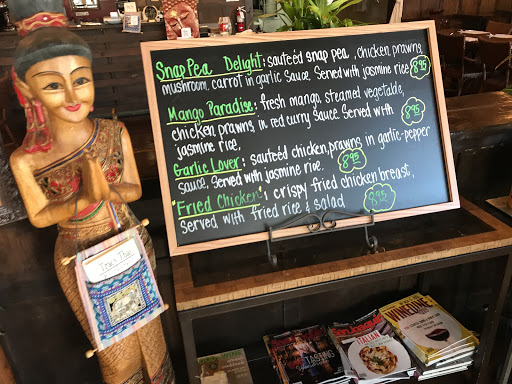 Snap Pea Delight: sauteéd snap pea, chicken, prawns,
mushroom, carrot in garlic sauce. Served with jasmine rice 8.95
Mango Paradise: fresh mango, steamed vegetable,
chicken, prawns, in red curry sauce. Served with
jasmine rice. 8.95
Garlic Lover: sauteéd chicken, prawns in garlic-pepper
sauce, Served with jasmine rice. 8.95
"Fried Chicken"; crispy fried chicken breast,
served with fried rice & salad 8.95
WINE
TASTING
ITALIAN